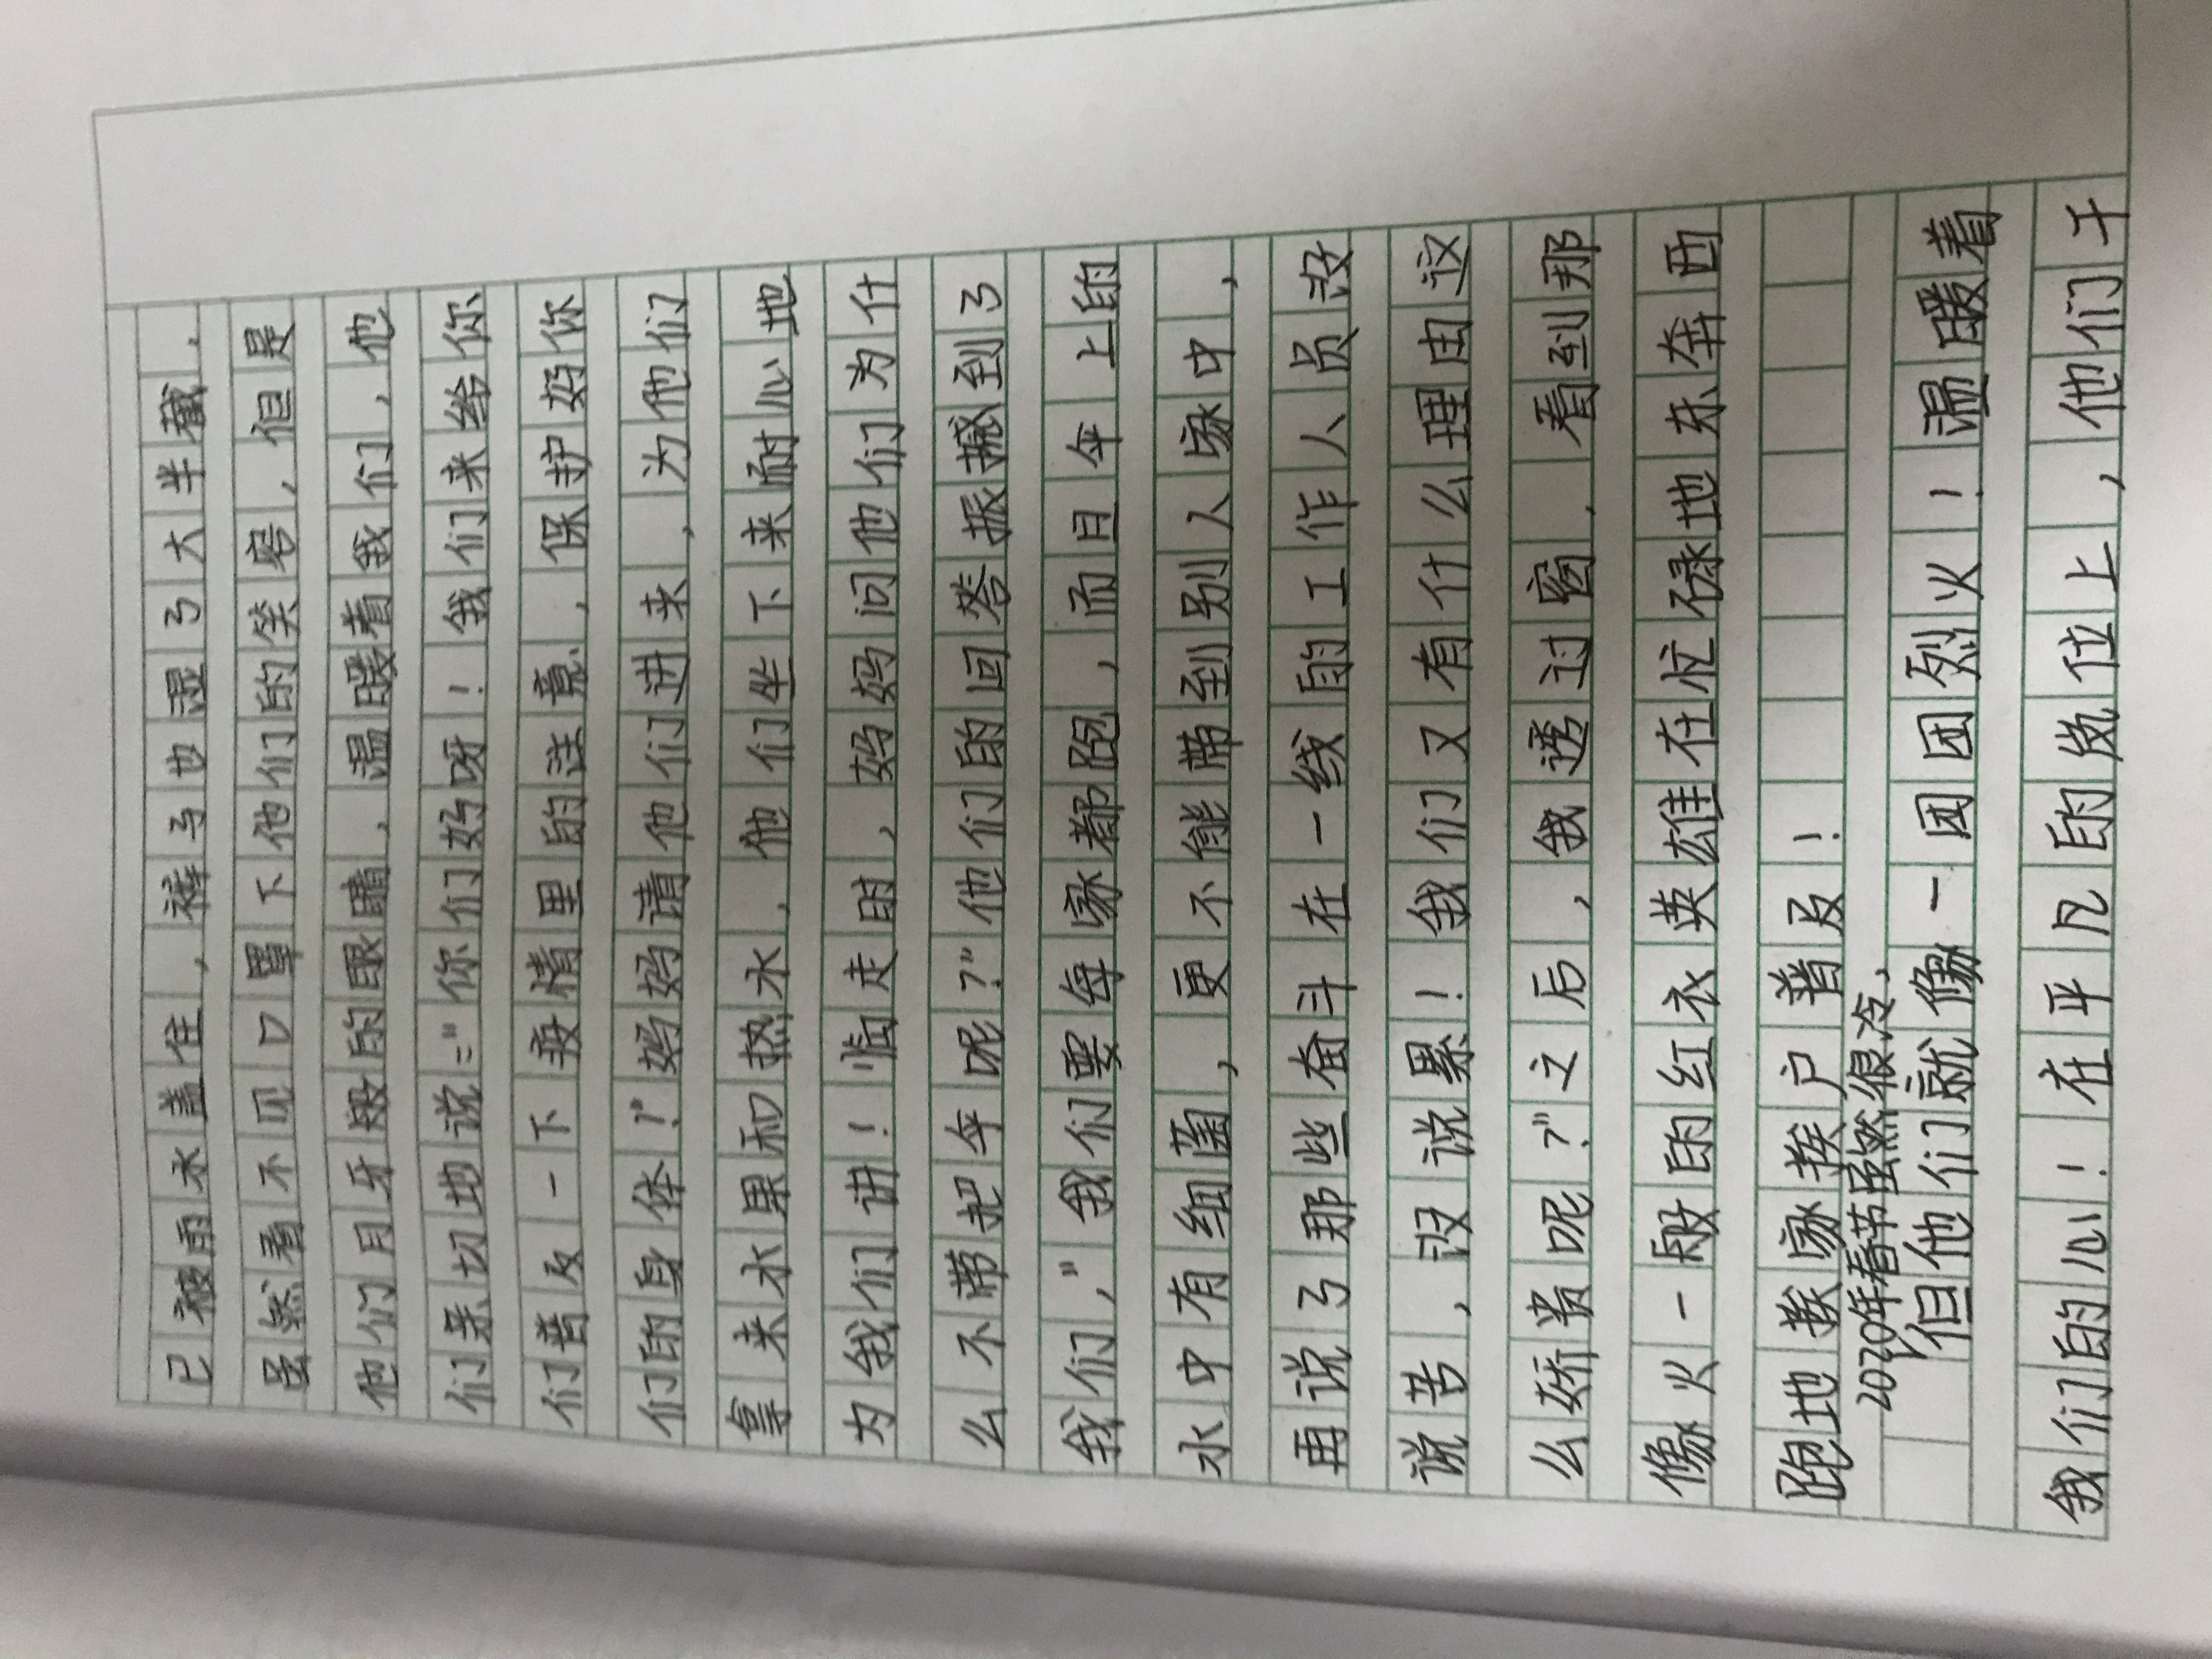 已被雨水盖住，裤子也湿了大半截．
虽然看不见口罩下他们的笑容，但是
他们月牙般的眼睛，温暖着我们，他
们亲切地说："你们好呀！我们来给你
们普及一下疫情里的注意，保护好你
们的身体！"妈妈请他们进来，为他们
拿来水果和热水，他们坐下来耐心地
为我们讲！临走时，妈妈问他们为什
么不带把伞呢？"他们的回答振撼到了
我们，"我们要每家都跑，而且伞上的
水中有细菌，更不能带到别人家中，
再说了那些奋斗在一线的工作人员没
说苦，没说累！我们又有什么理由这
么娇贵呢？"之后，我透过窗．看到那
像火一般的红衣英雄在忙碌地东奔西
跑地挨家挨户普及！
2020年春节虽然很冷，
但他们就像一团团烈火！温暖着
我们的心！在平凡的岗位上，他们干